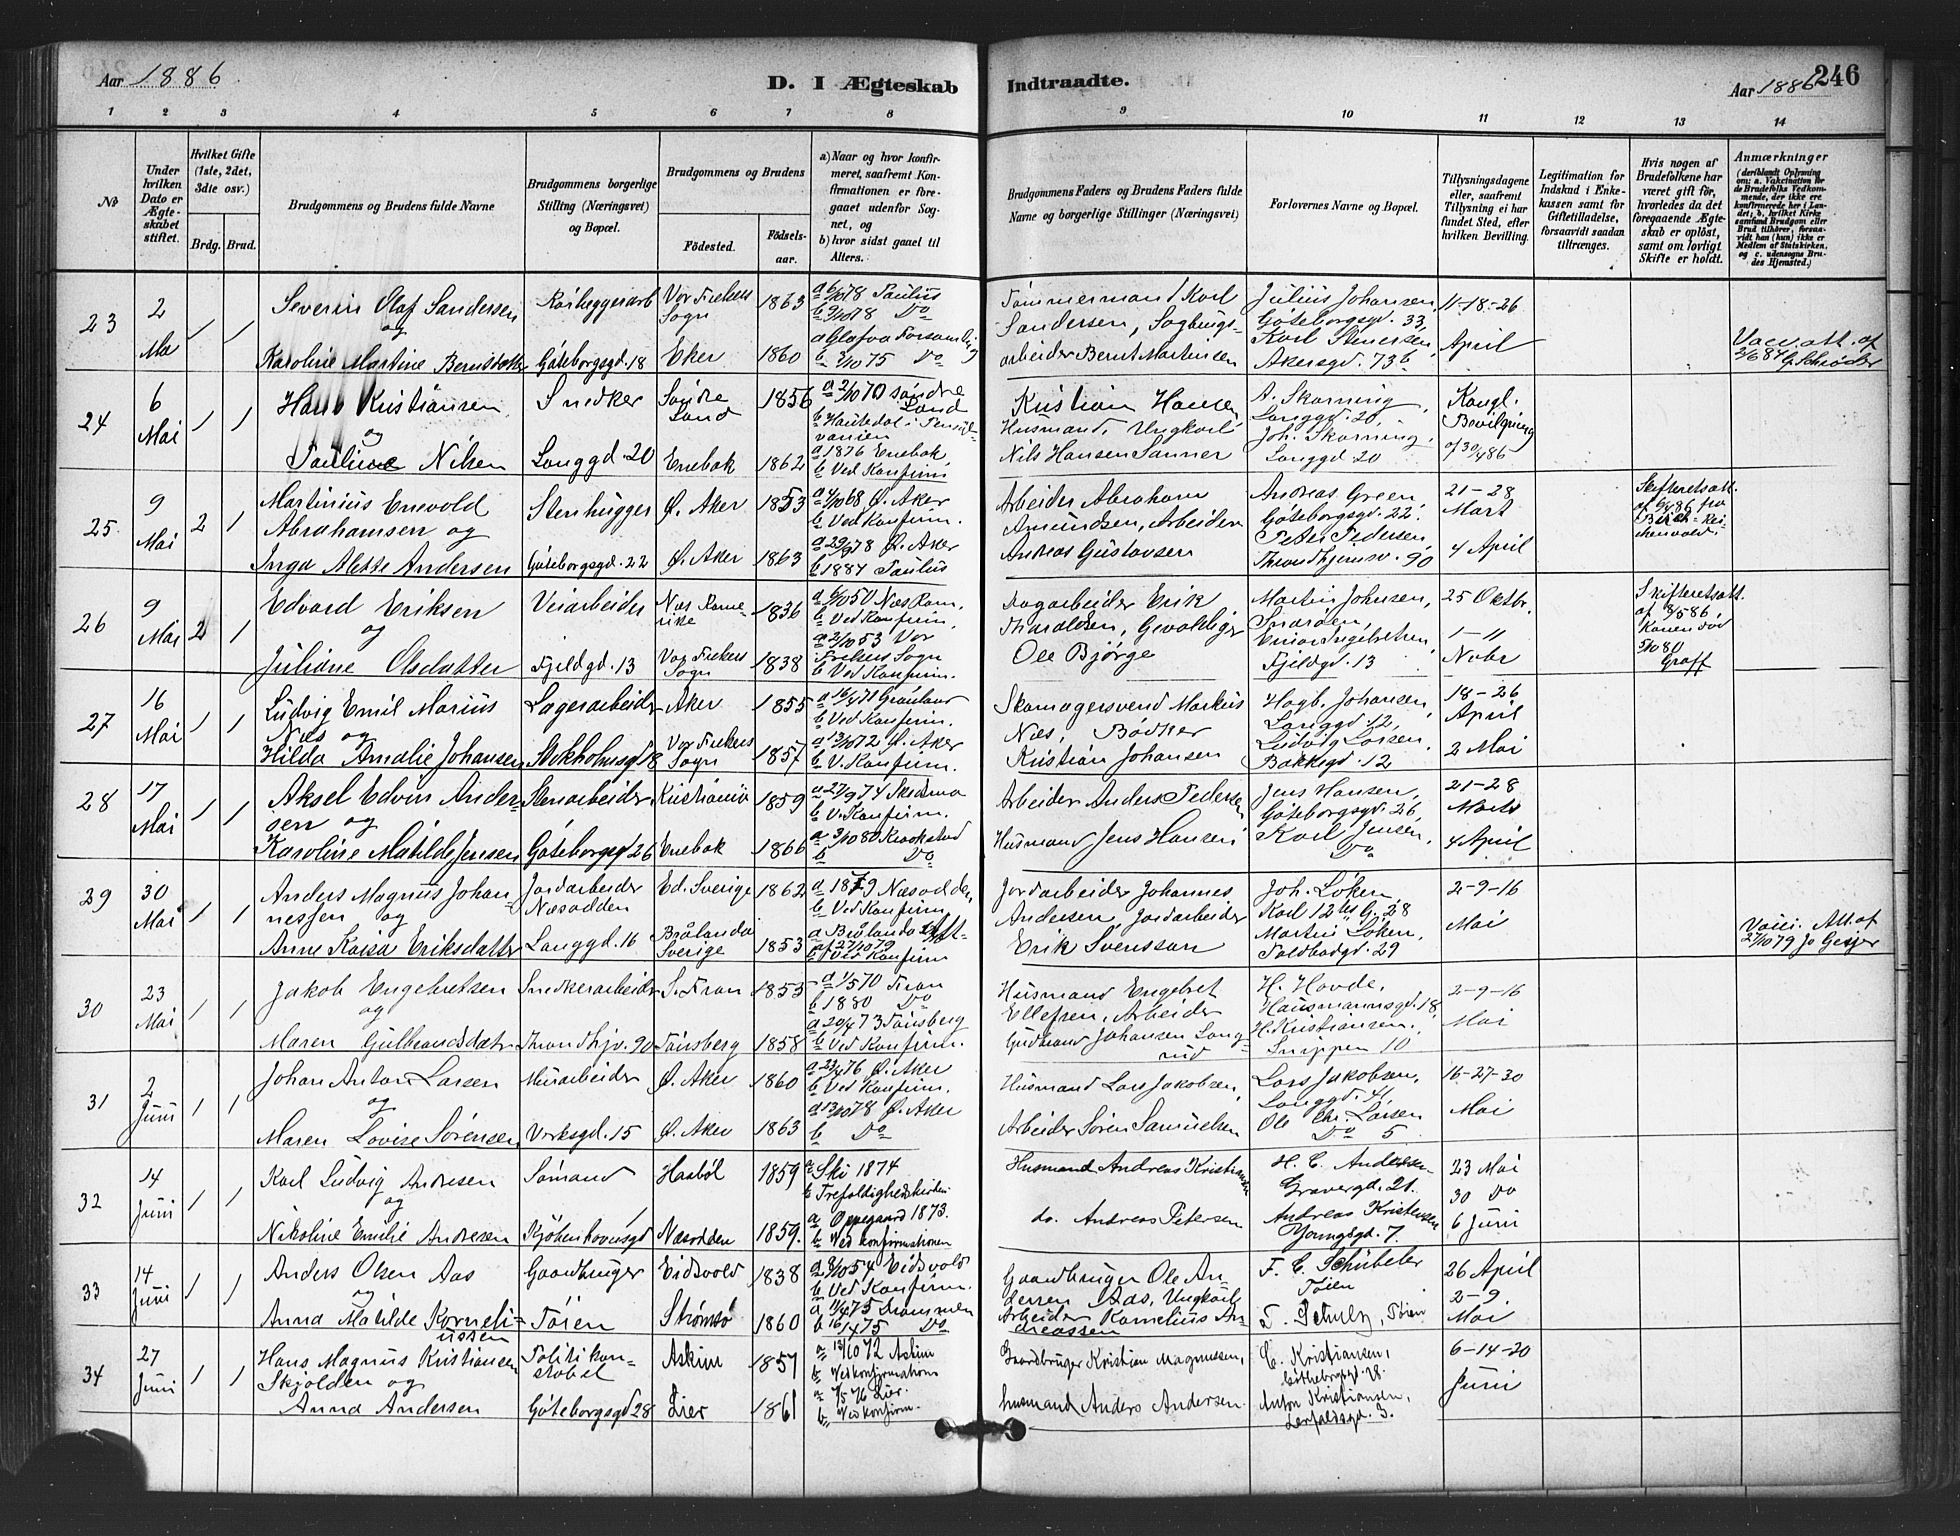 Aar 1886
D. I Ægteskab
Indtraadte.
Aar 1886
246
1 2 3 4 5 6 7 8
9 10 11 12 13 14
No
Under hvilken Dato er Ægteskabet stiftet.
Hvilket Gifte (1ste, 2det, 3die osv.)
Brdg. Brud.
Brudgommens og Brudens fulde Navne
Brudgommens borgerlige Stilling (Næringsvei) og Bopæl.
Brudgommens og Brudens
Födested.
Födselsaar.
a) Naar og hvor konfirmeret, saafremt Konfirmationen er foregaaet udenfor Sognet, og
b) hvor sidst gaaet til Alters.
Brudgommens Faders og Brudens Faders fulde Navne og borgerlige Stillinger (Næringsvei)
Forlovernes Navne og Bopæl.
Tillysningsdagene eller, saafremt Tillysning ei har fundet Sted, efter hvilken Bevilling.
Legitimation for Indskud i Enkekassen samt for Giftetilladelse, forsaavidt saadan tiltrænges.
Hvis nogen af Brudefolkene har været gift för, hvorledes da det foregaaende Ægteskab er oplöst, samt om lovligt Skifte er holdt.
Anmærkninger
(deriblandt Oplysning om: a. Vaccination for de Brudefolks Vedkommende, der ikke ere konfirmerede her i Landet; b. hvilket Kirkesamfund Brudgom eller Brud tilhörer, forsaavidt han (hun) ikke er Medlem af Statskirken, og c. udensogns Brudes Hjemsted.)
23
2 Mai
1 1
Severin Olaf Sandersen
og
Karoline Martine Berntsdatter
Rörlæggerarb
Göteborgsgd. 18
Vor Frelsers Sogn 1863
Eker 1860
a 6/10 78 Paulus
b 3/10 78 Do
a Olafva Forsamling
b 3/10 75 Do
Tömmermand Karl
Sandersen, Sagbrugsarbeider Bernt Martinsen
Julius Johansen,
Göteborgsgd. 33,
Karl Stenersen,
Akersgd. 73b
11-18-26
April
Vacc. att. af
G. Schröder
24
6 Mai
1 1
Hans Kristiansen
og
Pauline Nilsen
Snedker
Langgd. 20
Söndre Land 1856
Enebak 1862
a 2/10 70 Söndre Land
a 1876 Enebak
b Ved Konfirm.
Kristian Hansen
Husmand, Ungkarl
Nils Hansen Sanner
A. Skarning,
Langgd. 20,
Joh. Skarning,
Langgd. 20
Kongl.
Bevilgning
af 30/4 86
25
9 Mai
2 1
Martinius Enevold
Abrahamsen og
Inga Alette Andersen
Stenhugger
Göteborgsgd. 22
Ø. Aker 1853
Ø. Aker 1863
a 4/10 68 Ø. Aker
b Ved Konfirm.
a 29/9 78 Ø. Aker
b 1884 Paulus
Arbeider Abraham
Amundsen, Arbeider
Andreas Gustavsen
Andreas Green,
Göteborgsgd. 22,
Peter Pedersen,
Throndhjemsv. 90
21-28
Mart
4 April
Skifteretsatt.
af 9/4 86 fra
Birch-Reichenwald.
26
9 Mai
2 1
Edvard Eriksen
og
Juliane Olsdatter
Veiarbeider
Fjeldgd. 13
Næs Romerike 1836
Vor Frelsers Sogn 1838
a 6/10 50 Næs Rom.
b Ved Konfirm.
a 2/10 53 Vor
Frelsers Sogn
b Ved Konfirm.
Dagarbeider Erik
Haraldsen, Gevaldiger
Ole Bjørge
Martin Johnsen,
Einar Ingebretsen
Fjeldgd. 13
25 Oktbr.
1-11
Nobr
Skifteretsatt.
af 8/5 86
Konen död
5/10 80
Graff
27
16 Mai
1 1
Ludvig Emil Marius
Næs og
Hilda Amalie Johansen
Lagerarbeider
Stokholmsgd 18
Aker 1855
Vor Frelsers Sogn 1857
a 16/4 71 Grönland
b Ved Konfirm.
a 13/10 72 Ø. Aker
b V. Konfirm.
Skomagersvend Markus
Næs, Bødker
Kristian Johansen
Hagb. Johansen,
Langgd. 12,
Ludvig Larsen,
Bakkegd. 12
18-26
April
2 Mai
28
17 Mai
1 1
Aksel Edvin Andersen og
Karoline Matilde Jensen
Stenarbeider
Göteborgsgd 26
Kristiania 1859
Enebak 1866
a 27/9 74 Skedsmo
b V. Konfirm.
a 3/10 80 Kraakstad
b Do
Arbeider Anders Pedersen
Husmand Jens Hansen
Jens Hansen,
Göteborgsgd. 26,
Karl Jensen,
Do
21-28
Marts
4 April
29
30 Mai
1 1
Anders Magnus Johannessen og
Anne Kaisa Eriksdatter
Jordarbeider
Næsodden
Langgd. 16
Ed. Sverige 1862
Brålanda Sverige 1853
a 1879 Næsodden
b Ved Konfirm
a Brålanda Att.
af 27/10 79
b Ved Konfirm
Jordarbeider Johannes
Andersen, Jordarbeider
Erik Svensson
Joh. Løken,
Karl 12tes G. 28
Martin Løken,
Toldbodgd. 29
2-9-16
Mai
Vacci. Att. af
27/10 79 Jo Geijer
30
23 Mai
1 1
Jakob Engebretsen
og
Maren Gulbrandsdatr
Snedkerarbeider
Throndhjv. 90
S. Fron 1855
Tönsberg 1858
a 1/5 70 Fron
b 1880 Do
a 20/4 73 Tönsberg
b Ved Konfirm.
Husmand Engebret
Ellefsen, Arbeider
Gudbrand Johansen Langrud
H. Hovde,
Hausmannsgd. 18,
H. Kristiansen,
Snippen 10
2-9-16
Mai
31
2 Juni
1 1
Johan Anton Larsen
og
Maren Lovise Sörensen
Murarbeider
Verksgd. 15
Ø. Aker 1860
Ø. Aker 1863
a 23/4 76 Ø. Aker
b Ved Konfirm.
a 13/10 78 Ø. Aker
b Do
Husmand Lars Jakobsen,
Arbeider Sören Samuelsen
Lars Jakobsen,
Langgd. 41,
Ole Chr. Larsen
Do 5
16-27-30
Mai
32
14 Juni
1 1
Karl Ludvig Andresen
og
Nikoline Emilie Andresen
Sömand
Kjöbenhavnsgd
Haabøl 1859
Næsodden 1859.
a Ski 1874
b Trefoldighedskirken
a Oppegaard 1873.
b Ved konfirmationen
Husmand Andreas Kristiansen
do. Andreas Petersen
H. C. Andersen
Gravergd. 21.
Andreas Kristensen
Youngsgd. 7.
23 Mai
30 Do
6 Juni
33
14 Juni
1 1
Anders Olsen Aas
og
Anna Matilde Korneliussen
Gaardbruger
Töien
Eidsvold 1838
Strömsö 1860
a 8/10 54 Eidsvold
b Ved Konfirm.
a 11/4 75 Drammen
b 16/4 75 Do
Gaardbruger Ole Andersen Aas, Ungkarl
Arbeider Kornelius Andreassen
F. C. Schübeler
Töien
F. Schulz, Töien
26 April
2-9
Mai
34
27 Juni
1 1
Hans Magnus Kristiansen
Skjolden og
Anna Andersen
Politikonstabel
Göteborgsgd 28
Askim 1857
Lier 1861
a. 13/10 72 Askim
b. Ved konfirmationn
a 7/5 76 Lier.
b. Ved konfirm.
Gaardbruger Kristian Magnussen,
husmand Anders Andersen.
C. Kristiansen,
Götheborgsgd. 28.
Anton Kristiansen,
Lerfaldsgd. 3.
6-14-20
Juni